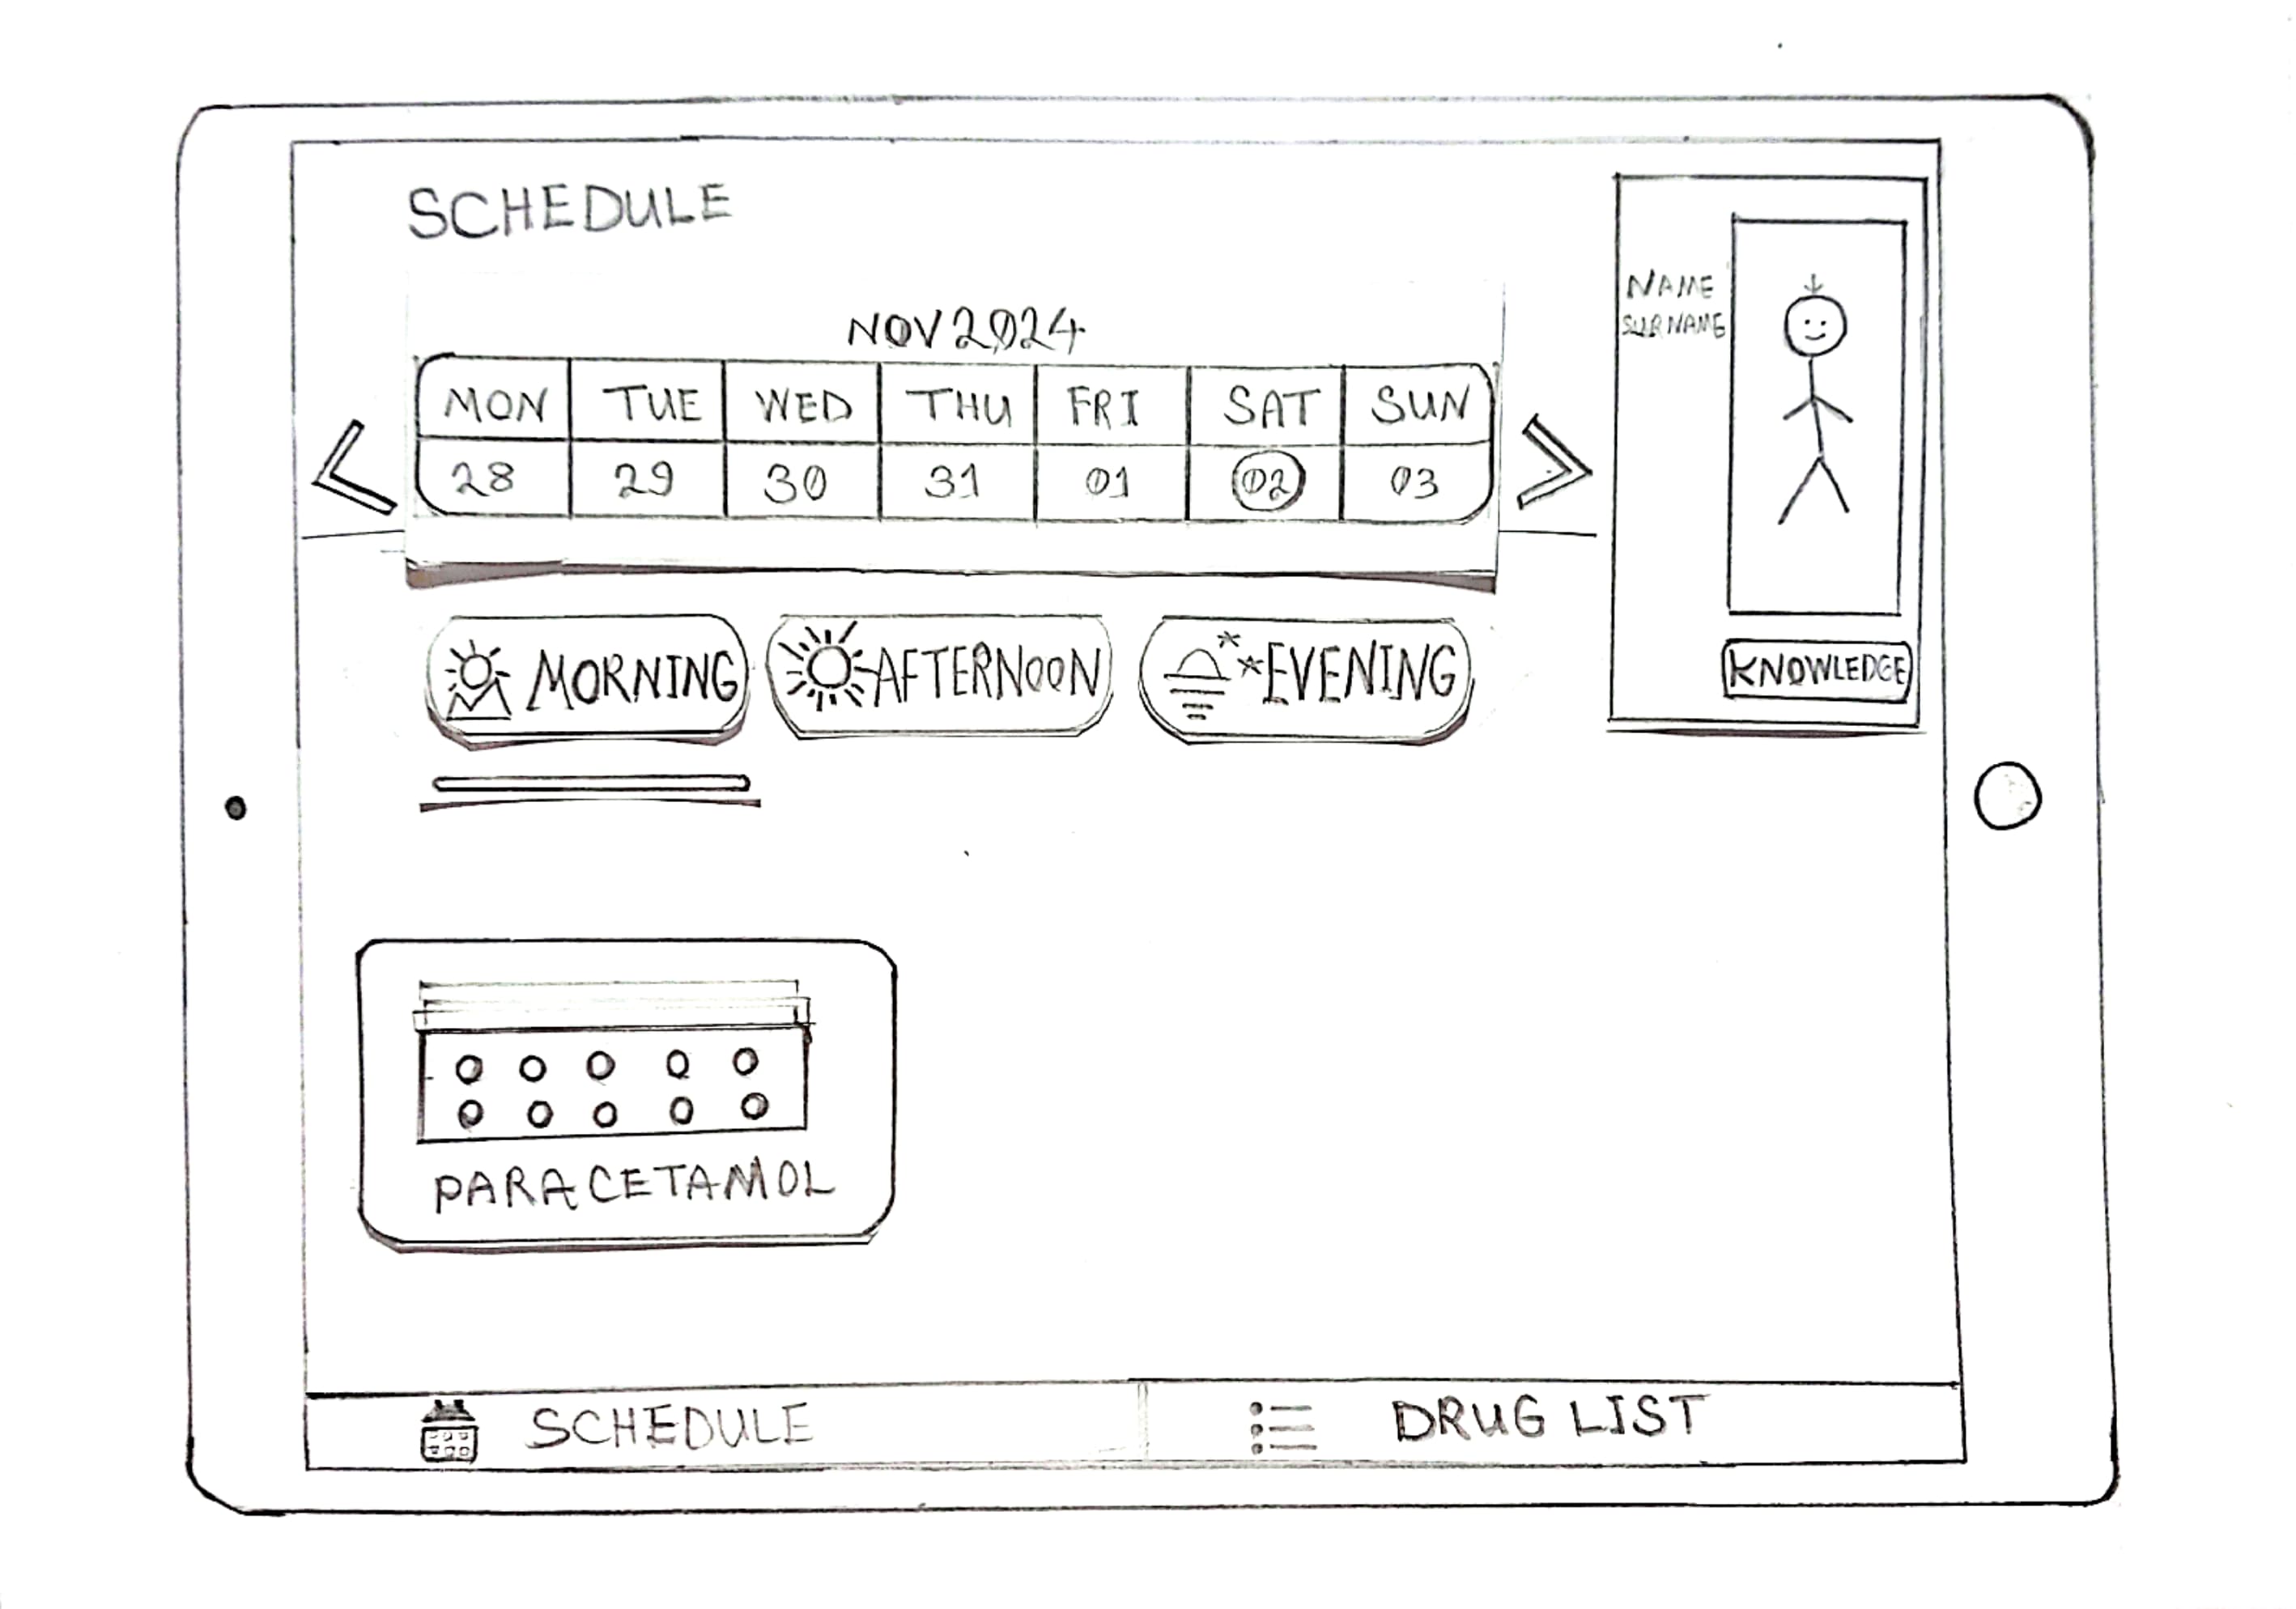 SCHEDULE
NOV 2024
MON TUE WED THU FRI SAT SUN
28 29 30 31 01 02 03
NAME
SURNAME
KNOWLEDGE
MORNING
AFTERNOON
EVENING
PARACETAMOL
SCHEDULE
DRUG LIST